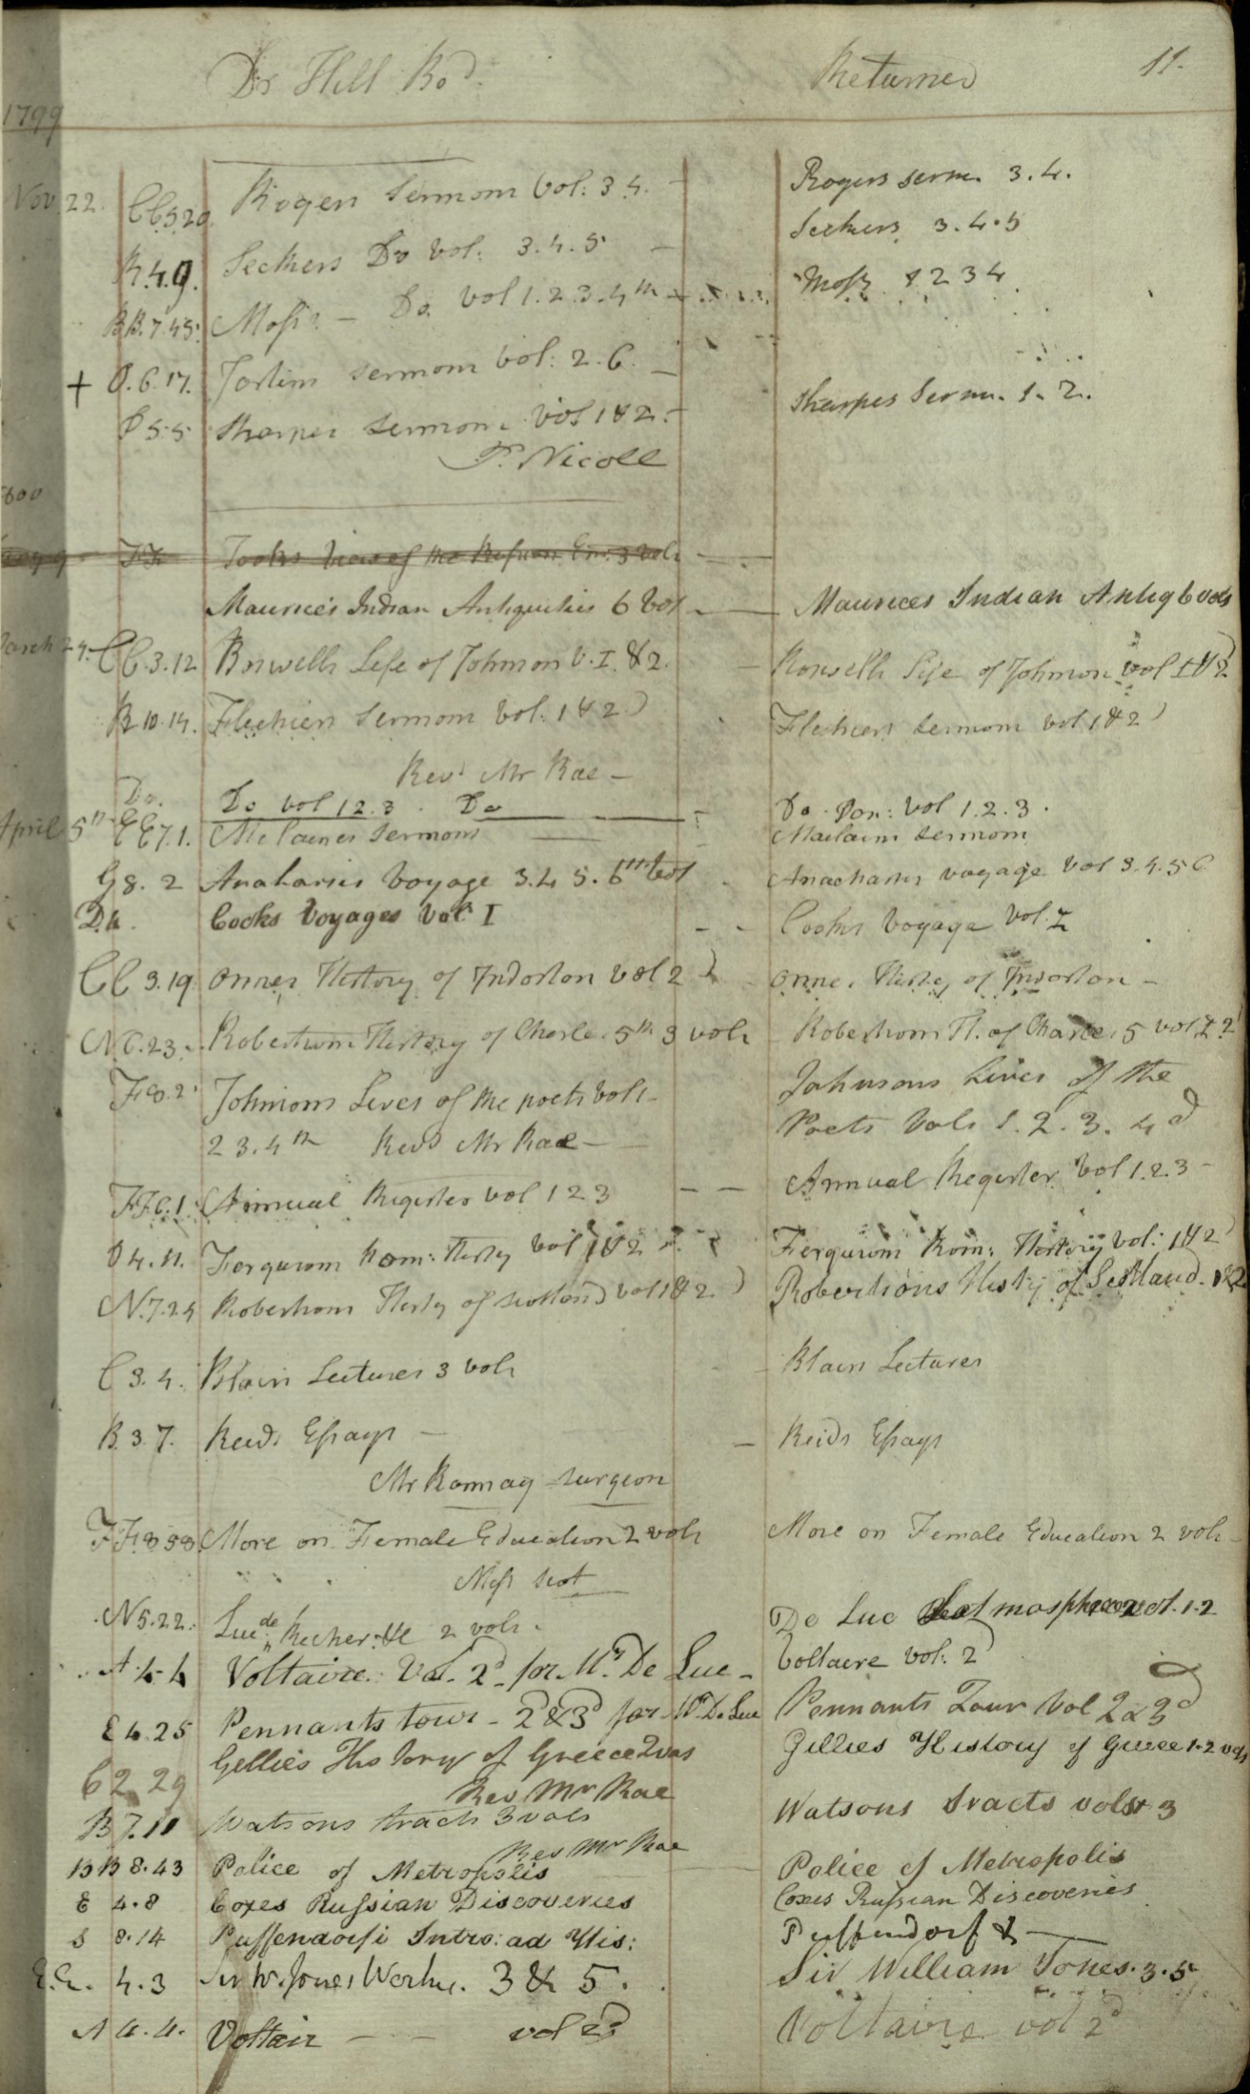 Dr Hill Bod. Returned 11.
1799
Nov. 22. CC.5.20. Rogers Sermons Vol: 3 4. - Rogers serm. 3. 4.
R.4.9. Seckers Do Vol: 3. 4. 5 - Seckers 3. 4. 5
BB.7.45. Moss - Do. Vol 1. 2. 3. 4th Moss 1 2 3 4
+ O. 6. 17. Jortins Sermons Vol: 2. 6. -
P 5. 5 Sharpes Sermons Vol 1 & 2. - Sharpes Serm. 1. 2.
P. Nicoll
1800
FF Tooks View of the Russian Em. 3 vols
Maurice's Indian Antiquities 6 Vol - Maurices Indian Antiq 6 vols
March 24. CC.3.12 Boswells Life of Johnson V. I. & 2. - Boswells Life of Johnson vol I & 2
B 10. 14. Flechiers Sermons Vol. 1 & 2 Flechiers Sermons vol 1 & 2
Revd Mr Rae -
Do. Do vol 1 2. 3. Do Do Vol 1. 2. 3.
April 5th EE 7. 1. Mclaines Sermons - Maclains Sermons
G 8. 2 Anaharsis Voyage 3. 4 5. 6th vol Anacharsis voyage Vol 3. 4. 5 6
Da. Cooks Voyages Vol I - - Cooks Voyage Vol. I
CC 3. 19 Ormes History of Indostan Vol 2 Orme. Histy of Indostan -
N. 6. 23. Robertsons History of Charles 5th 3 vols Robertsons H. of Charles 5 vol I. 2
F 8. 2. Johnsons Lives of the poets Vols - Johnsons Lives of the
2 3. 4th Revd Mr Rae - Poets Vols 1. 2. 3. 4
FF. 6. 1. Annual Register Vol 1 2 3 - - Annual Register Vol 1. 2. 3 -
O 4. 11. Fergusons Rom: Histy Vol 1 & 2 Fergusons Rom: History Vol: 1 & 2
N. 7. 24 Robertsons Histy of Scotland vol 1 & 2. Robertsons Histy of Scotland. 1 & 2
C 3. 4. Blairs Lectures 3 vols - Blairs Lectures
B. 3 7. Reids Essays - - Reids Essays
Mr Ramsay Surgeon
FF. 8 58 More on Female Education 2 vols More on Female Education 2 vols -
Miss Scot
N 5. 22. Luc de Recher: &c 2 vols. De Luc Atmosphere vol. 1. 2
A. 4. 4 Voltaire. Vol. 2d for Mr De Luc - Voltaire vol: 2
E 4. 25 Pennants tour - 2d & 3d for Mr De Luc Pennants Tour Vol 2 & 3d
C 2 29 Gellies History of Greece 2 vols Gillies History of Greece 1. 2 vols
Rev Mr Rae
B 7. 11 Watsons tracts 3 vols Watsons Tracts vols 3
Rev Mr Rae
BB 8. 43 Police of Metropolis - Police of Metropolis
E 4. 8 Coxes Russian Discoveries Coxes Russian Discoveries
S 8. 14 Puffendorfi Intro: ad His: Puffendorf & -
E.E. 4. 3 Sir W. Jones Works. 3 & 5. Sir William Jones. 3. 5
A 4. 4. Voltair - - vol 2d Voltaire vol 2d